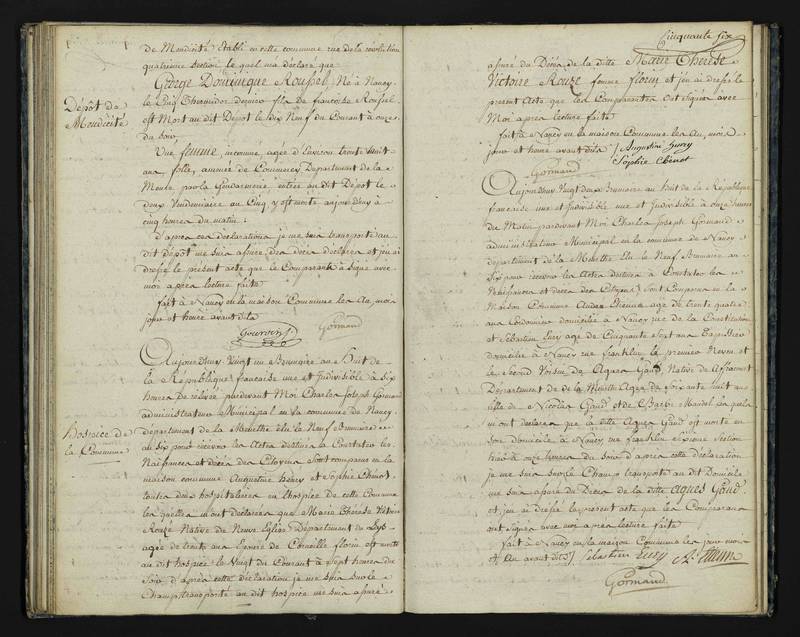 de Mendicité établi en cette commune rue de la révolution
quatrieme section le quel m'a déclaré que
George Dominique Roussel, Né à Nancy
le Cinq Thermidor dernier fils de françoise Roussel
est Mort au dit Depot le dix Neuf du Courant à onze
du soir
Dépôt de
Mendicité
Une femme, inconnue, agée d'Environ trente huit
ans, folle, amenée de Commercy Departement de la
Meuse par la Gendarmerie, entrée au dit Dépôt le
deux Vendemiaire an Cinq, y est morte aujourd'huy à
cinq heures du matin.
d'apres ces déclarations je me suis transporté au
dit dépôt me suis assuré des décès declarés et j'en ai
dressé le present acte que le Comparant a signé avec
moi apres lecture faite
fait à Nancy en la maison Commune les An, mois
jour et heure avant dits
Gormand
Aujourd'huy Vingt un Brumaire an Huit de
la République française une et Indivisible à six
heures de relevée pardevant Moi Charles Joseph Gormand
administrateur Municipal en la commune de Nancy,
département de la Meurthe élu le Neuf Brumaire
an six pour recevoir les Actes destinés à Constater les
Naissances et décès des Citoyens, sont comparus en la
Hospice de
la Commune
maison commune Augustine henry et Sophie Chenot,
toutes deux hospitalieres en l'hospice de cette Commune
les quelles m'ont déclarées que Marie Thérèse Victoire
Rouzé Native de Neuve Eglise Département du Lys
agée de trente ans Epouse de Corneille florin est morte
au dit hospice le Vingt du Courant à sept heures du
soir d'après cette déclaration je me suis sur le
Champ transporté au dit hospice me suis assuré
Cinquante six
assuré du Décès de la ditte Marie Thérèse
Victoire Rouzé femme florin et j'en ai dressé le
present Acte que les Comparantes ont signées avec
Moi apres lecture faite
fait à Nancy en la maison Commune les An, mois
jour et heure avant dits Augustine henry
Sophie Chenot
Gormand
Aujourd'huy Vingt deux Brumaire an Huit de la République
française une et Indivisible à onze heures
du Matin pardevant Moi Charles Joseph Gormand
administrateur Municipal en la commune de Nancy
département de la Meurthe élu le Neuf Brumaire an
six pour recevoir les Actes destinés à Constater les
Naissances et décès des Citoyens, sont Comparus en la
Maison Commune agé de trente quatre
ans Cordonnier domicilié à Nancy rue de la Constitution
et Sébastien agé de Cinquante sept ans
domicilié à Nancy rue franklin le premier Neveu et
le second Voisin de Agnes Gand, Native de
Département de la Meurthe Agée de soixante huit ans
fille de Nicolas Gand et de Barbe les quels
m'ont declarés que la ditte Agnes Gand est morte en
son domicile à Nancy rue franklin section
à onze heures du soir d'apres cette déclaration
je me suis sur le Champ transporté au dit Domicile
me suis assuré du Décès de la ditte Agnes Gand
et j'en ai dressé le present acte que les Comparans
ont signés avec moi apres lecture faite
fait à Nancy en la maison Commune les jour mois
et An avant dits Sébastien
Gormand